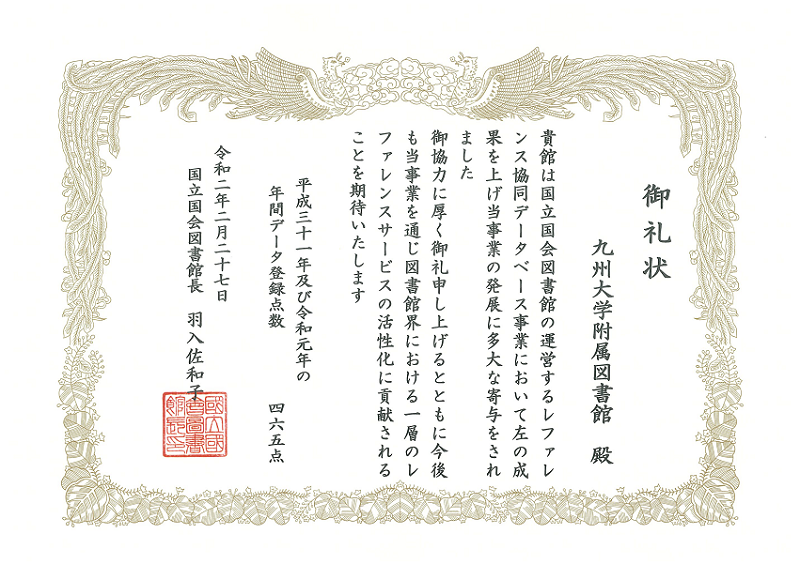 御礼状
九州大学附属図書館 殿
貴館は国立国会図書館の運営するレファレ
ンス協同データベース事業において左の成
果を上げ当事業の発展に多大な寄与をされ
ました
御協力に厚く御礼申し上げるとともに今後
も当事業を通じ図書館界における一層のレ
ファレンスサービスの活性化に貢献される
ことを期待いたします
平成三十一年及び令和元年の
年間データ登録点数 四六五点
令和二年二月二十七日
国立国会図書館長 羽入佐和子
國立國
會圖書
館長印